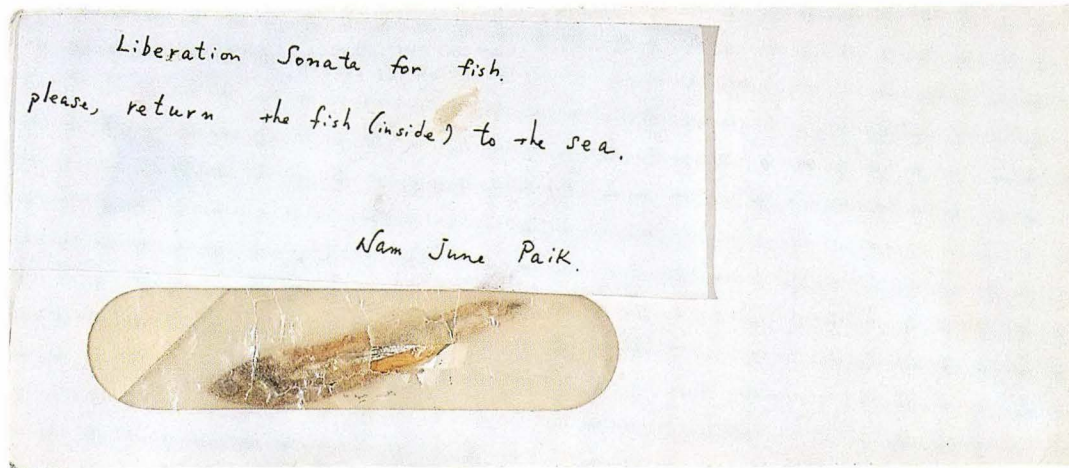 Liberation Sonata for fish.
please, return the fish (inside) to the sea.
Nam June Paik.